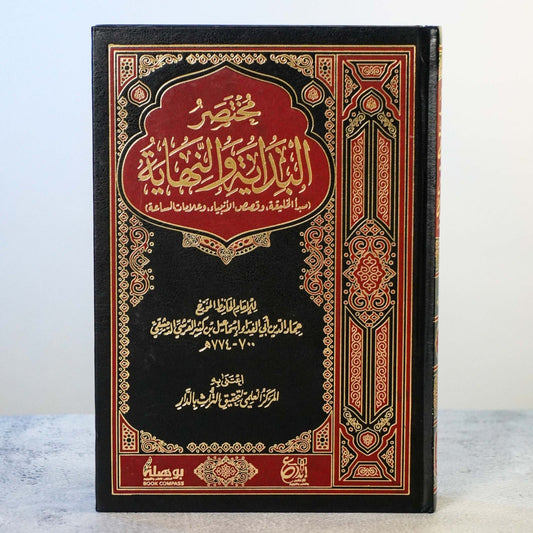 مختصر
البداية والنهاية
(مبدأ الخليقة، وقصص الأنبياء، وعلامات الساعة)
للإمام الحافظ المؤرخ
عماد الدين أبي الفداء إسماعيل بن كثير القرشي الدمشقي
٧٠٠-٧٧٤هـ
اعتنى به
المركز العلمي لتحقيق التراث بالدار
بوصلة
BOOK COMPASS